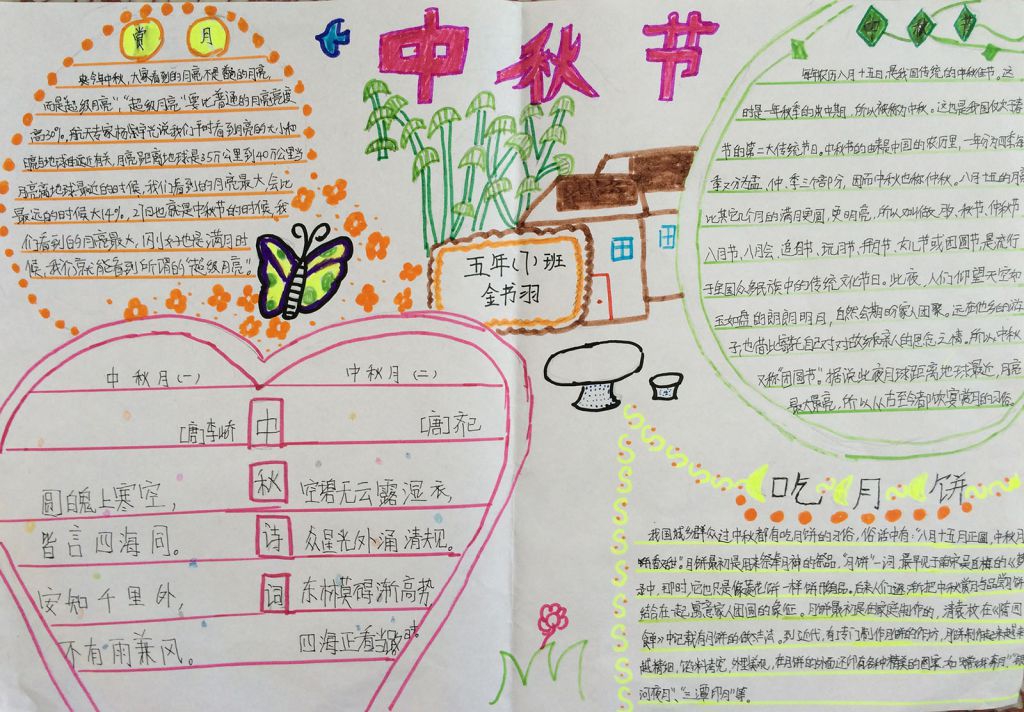 中秋节
赏月
来今年中秋,大家看到的月亮不是普通的月亮,
而是"超级月亮","超级月亮"要比普通的月亮亮度
高30%。航天专家杨宇光说我们平时看到月亮的大小和
它与地球的远近有关,月亮距离地球是35万公里到40万公里当
月亮离地球最近的时候,我们看到的月亮最大会比
最远的时候大14%。27日也就是中秋节的时候,我
们看到的月亮最大,同时也是满月时
候,我们就能看到所谓的"超级月亮"。
五年(7)班
金书羽
中秋节
每年农历八月十五日,是我国传统的中秋佳节。这
时是一年秋季的中期,所以被称为中秋。这也是我国仅次于春
节的第二大传统节日。中秋节的由来是中国的农历里,一年分为四季每
季又分为孟、仲、季三个部分,因而中秋也称仲秋。八月十五的月亮
比其它几个月的满月更圆,更明亮,所以又叫做月夕,秋节,仲秋节
八月节,八月会,追月节,玩月节,拜月节,女儿节或团圆节,是流行
于全国众多民族中的传统文化节日。此夜,人们仰望天空如
玉如盘的朗朗明月,自然会期盼家人团聚。远在他乡的游
子,也借此寄托自己对故乡和亲人的思念之情。所以,中秋
又称"团圆节"。据说此夜月球距离地球最近,月亮
最大最亮,所以从古至今都有赏月的习俗。
中秋诗词
中秋月(一)
[唐]李峤
圆魄上寒空,
皆言四海同。
安知千里外,
不有雨兼风。
中秋月(二)
[唐]齐己
空碧无云露湿衣,
众星光外涌清规。
东林莫碍渐高势,
四海正看当路时
吃月饼
我国城乡群众过中秋都有吃月饼的习俗,俗话中有:"八月十五月正圆,中秋月
饼香又甜"。月饼最初是用来祭奉月神的祭品,"月饼"一词,最早见于南宋吴自牧的《梦
中,那时,它也只是像菱花饼一样的饼形食品。后来人们逐渐把中秋赏月与品尝月饼
结合在一起,寓意家人团圆的象征。月饼最初是在家庭制作的,清袁枚在《隋园
中就记载有月饼的做法。到近代,有了专门制作月饼的作坊,月饼制作越来越
越精细,馅料考究,外型美观,在月饼的外面还印有各种精美的图案,如"嫦娥奔月","银
河夜月","三潭印月"等。